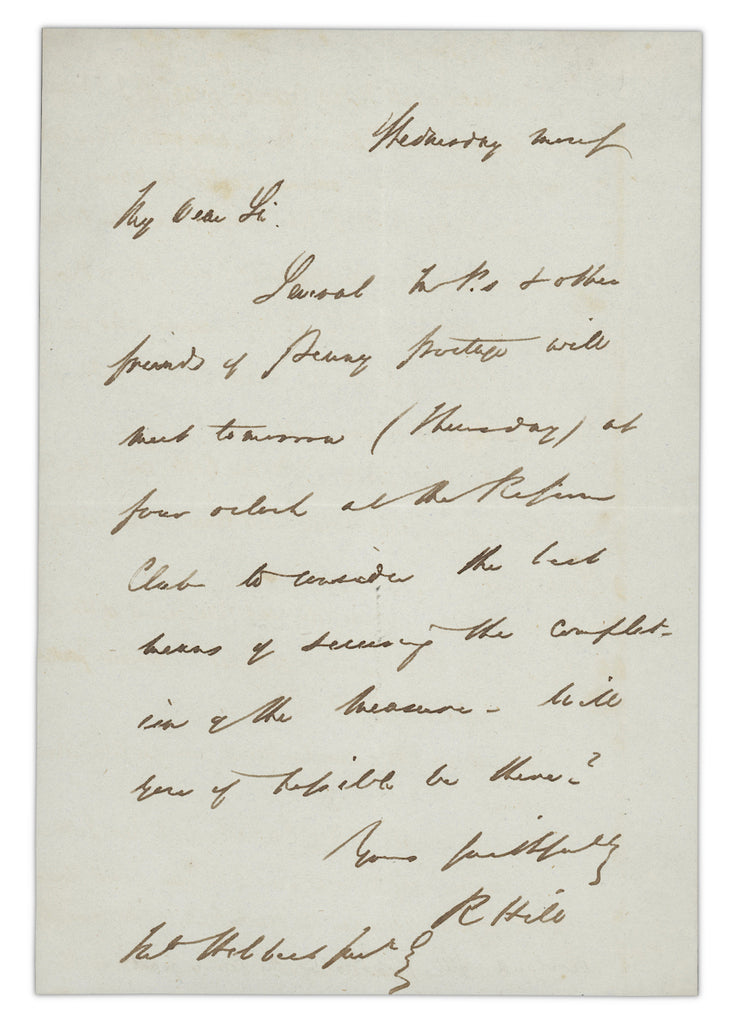 Wednesday morng
My Dear Sir.
Several M.P.s & other
friends of Penny postage will
meet tomorrow (Thursday) at
four oclock at the Reform
Club to consider the best
means of securing the complet-
ion of the measure - Will
you if possible be there?
Yours faithfully
R Hill